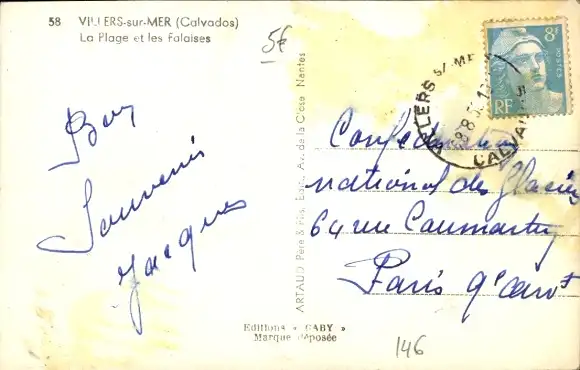 58 VILLERS-sur-MER (Calvados)
La Plage et les Falaises
5€
8F
POSTES
RF
CALVADOS
Bon
Souvenir
Jacques
Confédération
national des Glacier
64 rue Caumartin
Paris 9e arrt
ARTAUD Père & Fils, Edit., Av. de la Close, Nantes
Editions « GABY »
Marque déposée
146